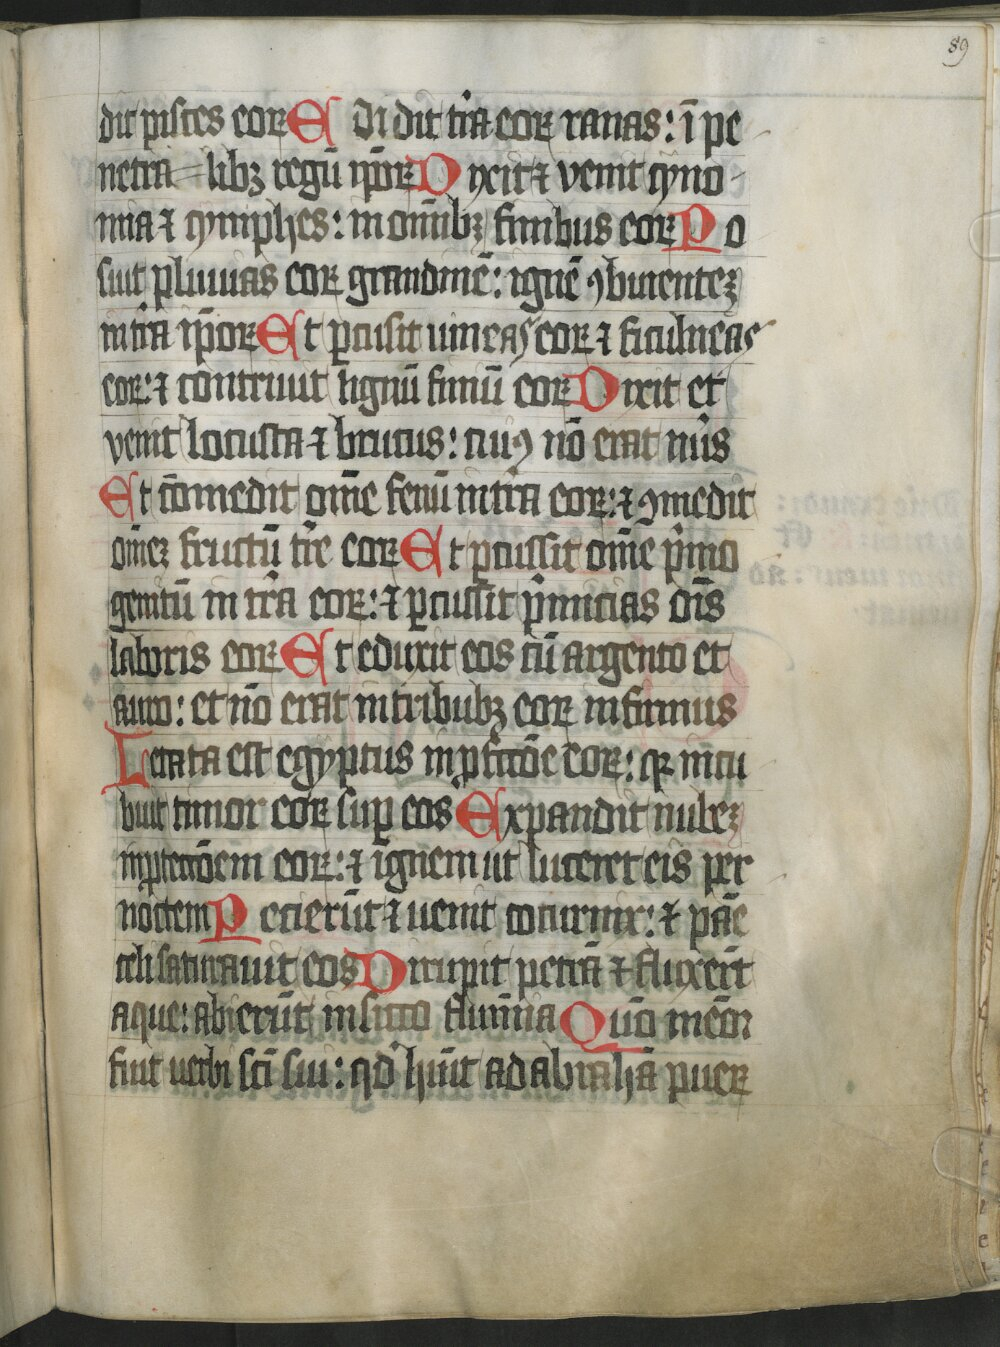 89
dit pisces eoꝝ Edidit t̄ra eoꝝ ranas: ī pe
netralibꝫ regū ip̄oꝝ Dixit ⁊ venit cyno
mia ⁊ cyniphes: in om̄ibꝫ finibus eoꝝ Po
suit pluuias eoꝝ grandinē: ignē ꝯburentez
in t̄ra ip̄oꝝ Et ꝑcusit uineas eoꝝ ⁊ ficulneas
eoꝝ: ⁊ contriuit lignū finiū eoꝝ Dixit et
venit locusta ⁊ brucus: cuiꝯ nō erat nūs
Et cōmedit om̄e fenū in t̄ra eoꝝ: ⁊ ꝯmedit
om̄ez fructū t̄re eoꝝ Et ꝑcussit om̄e p̄mo
genitū in t̄ra eoꝝ: ⁊ ꝑcussit p̄micias om̄s
laboris eoꝝ Et eduxit eos cū argento et
auro: et nō erat in tribubꝫ eoꝝ infirmus
Letata est egyptus in ꝓfc̄cōe eoꝝ: qꝛ incu
buit timor eoꝝ suꝑ eos Expandit nubez
in ꝓtectōem eoꝝ: ⁊ ignem ut luceret eis per
noctem Pecierūt ⁊ uenit coturnix: ⁊ pāe
celi saturauit eos Dirupit petrā ⁊ fluxer̄t
aque: abierūt in sicco flumīa Quō mēor
fuit uerbi sc̄i sui: qd̓ hūit ad abrahā pueꝝ